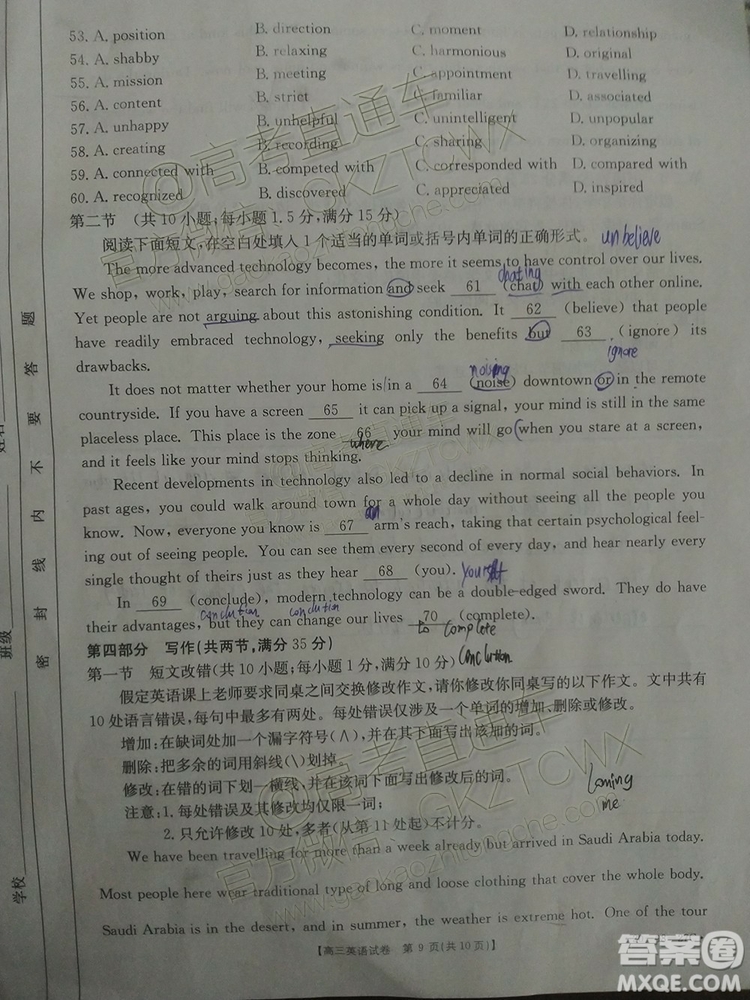 53. A. position B. direction C. moment D. relationship
54. A. shabby B. relaxing C. harmonious D. original
55. A. mission B. meeting C. appointment D. travelling
56. A. content B. strict C. familiar D. associated
57. A. unhappy B. unhelpful C. unintelligent D. unpopular
58. A. creating B. recording C. sharing D. organizing
59. A. connected with B. competed with C. corresponded with D. compared with
60. A. recognized B. discovered C. appreciated D. inspired
第二节 (共10小题;每小题1.5分,满分15分)
阅读下面短文,在空白处填入1个适当的单词或括号内单词的正确形式。 unbelieve
The more advanced technology becomes, the more it seems to have control over our lives.
chating
We shop, work, play, search for information and seek 61 (chat) with each other online.
Yet people are not arguing about this astonishing condition. It 62 (believe) that people
have readily embraced technology, seeking only the benefits but 63 (ignore) its
ignore
drawbacks.
noising
It does not matter whether your home is in a 64 (noise) downtown or in the remote
countryside. If you have a screen 65 it can pick up a signal, your mind is still in the same
placeless place. This place is the zone 66 your mind will go when you stare at a screen,
where
and it feels like your mind stops thinking.
Recent developments in technology also led to a decline in normal social behaviors. In
past ages, you could walk around town for a whole day without seeing all the people you
an
know. Now, everyone you know is 67 arm's reach, taking that certain psychological feel-
ing out of seeing people. You can see them every second of every day, and hear nearly every
single thought of theirs just as they hear 68 (you).
In 69 (conclude), modern technology can be a double-edged sword. They do have
conclution conclution
their advantages, but they can change our lives 70 (complete).
to complete
第四部分 写作(共两节,满分35分)
conclution
第一节 短文改错(共10小题;每小题1分,满分10分)
假定英语课上老师要求同桌之间交换修改作文,请你修改你同桌写的以下作文。文中共有
10处语言错误,每句中最多有两处。每处错误仅涉及一个单词的增加、删除或修改。
增加:在缺词处加一个漏字符号(∧),并在其下面写出该加的词。
删除:把多余的词用斜线(\)划掉。
修改:在错的词下划一横线,并在该词下面写出修改后的词。
注意:1. 每处错误及其修改均仅限一词;
me
2. 只允许修改10处,多者(从第11处起)不计分。
We have been travelling for more than a week already but arrived in Saudi Arabia today.
Most people here wear traditional type of long and loose clothing that cover the whole body.
Saudi Arabia is in the desert, and in summer, the weather is extreme hot. One of the tour
【高三英语试卷 第9页(共10页)】
学校
班级
姓名
密封线内不要答题
@高考直通车
官方微信:GKZTCWX
答案圈
MXQE.COM